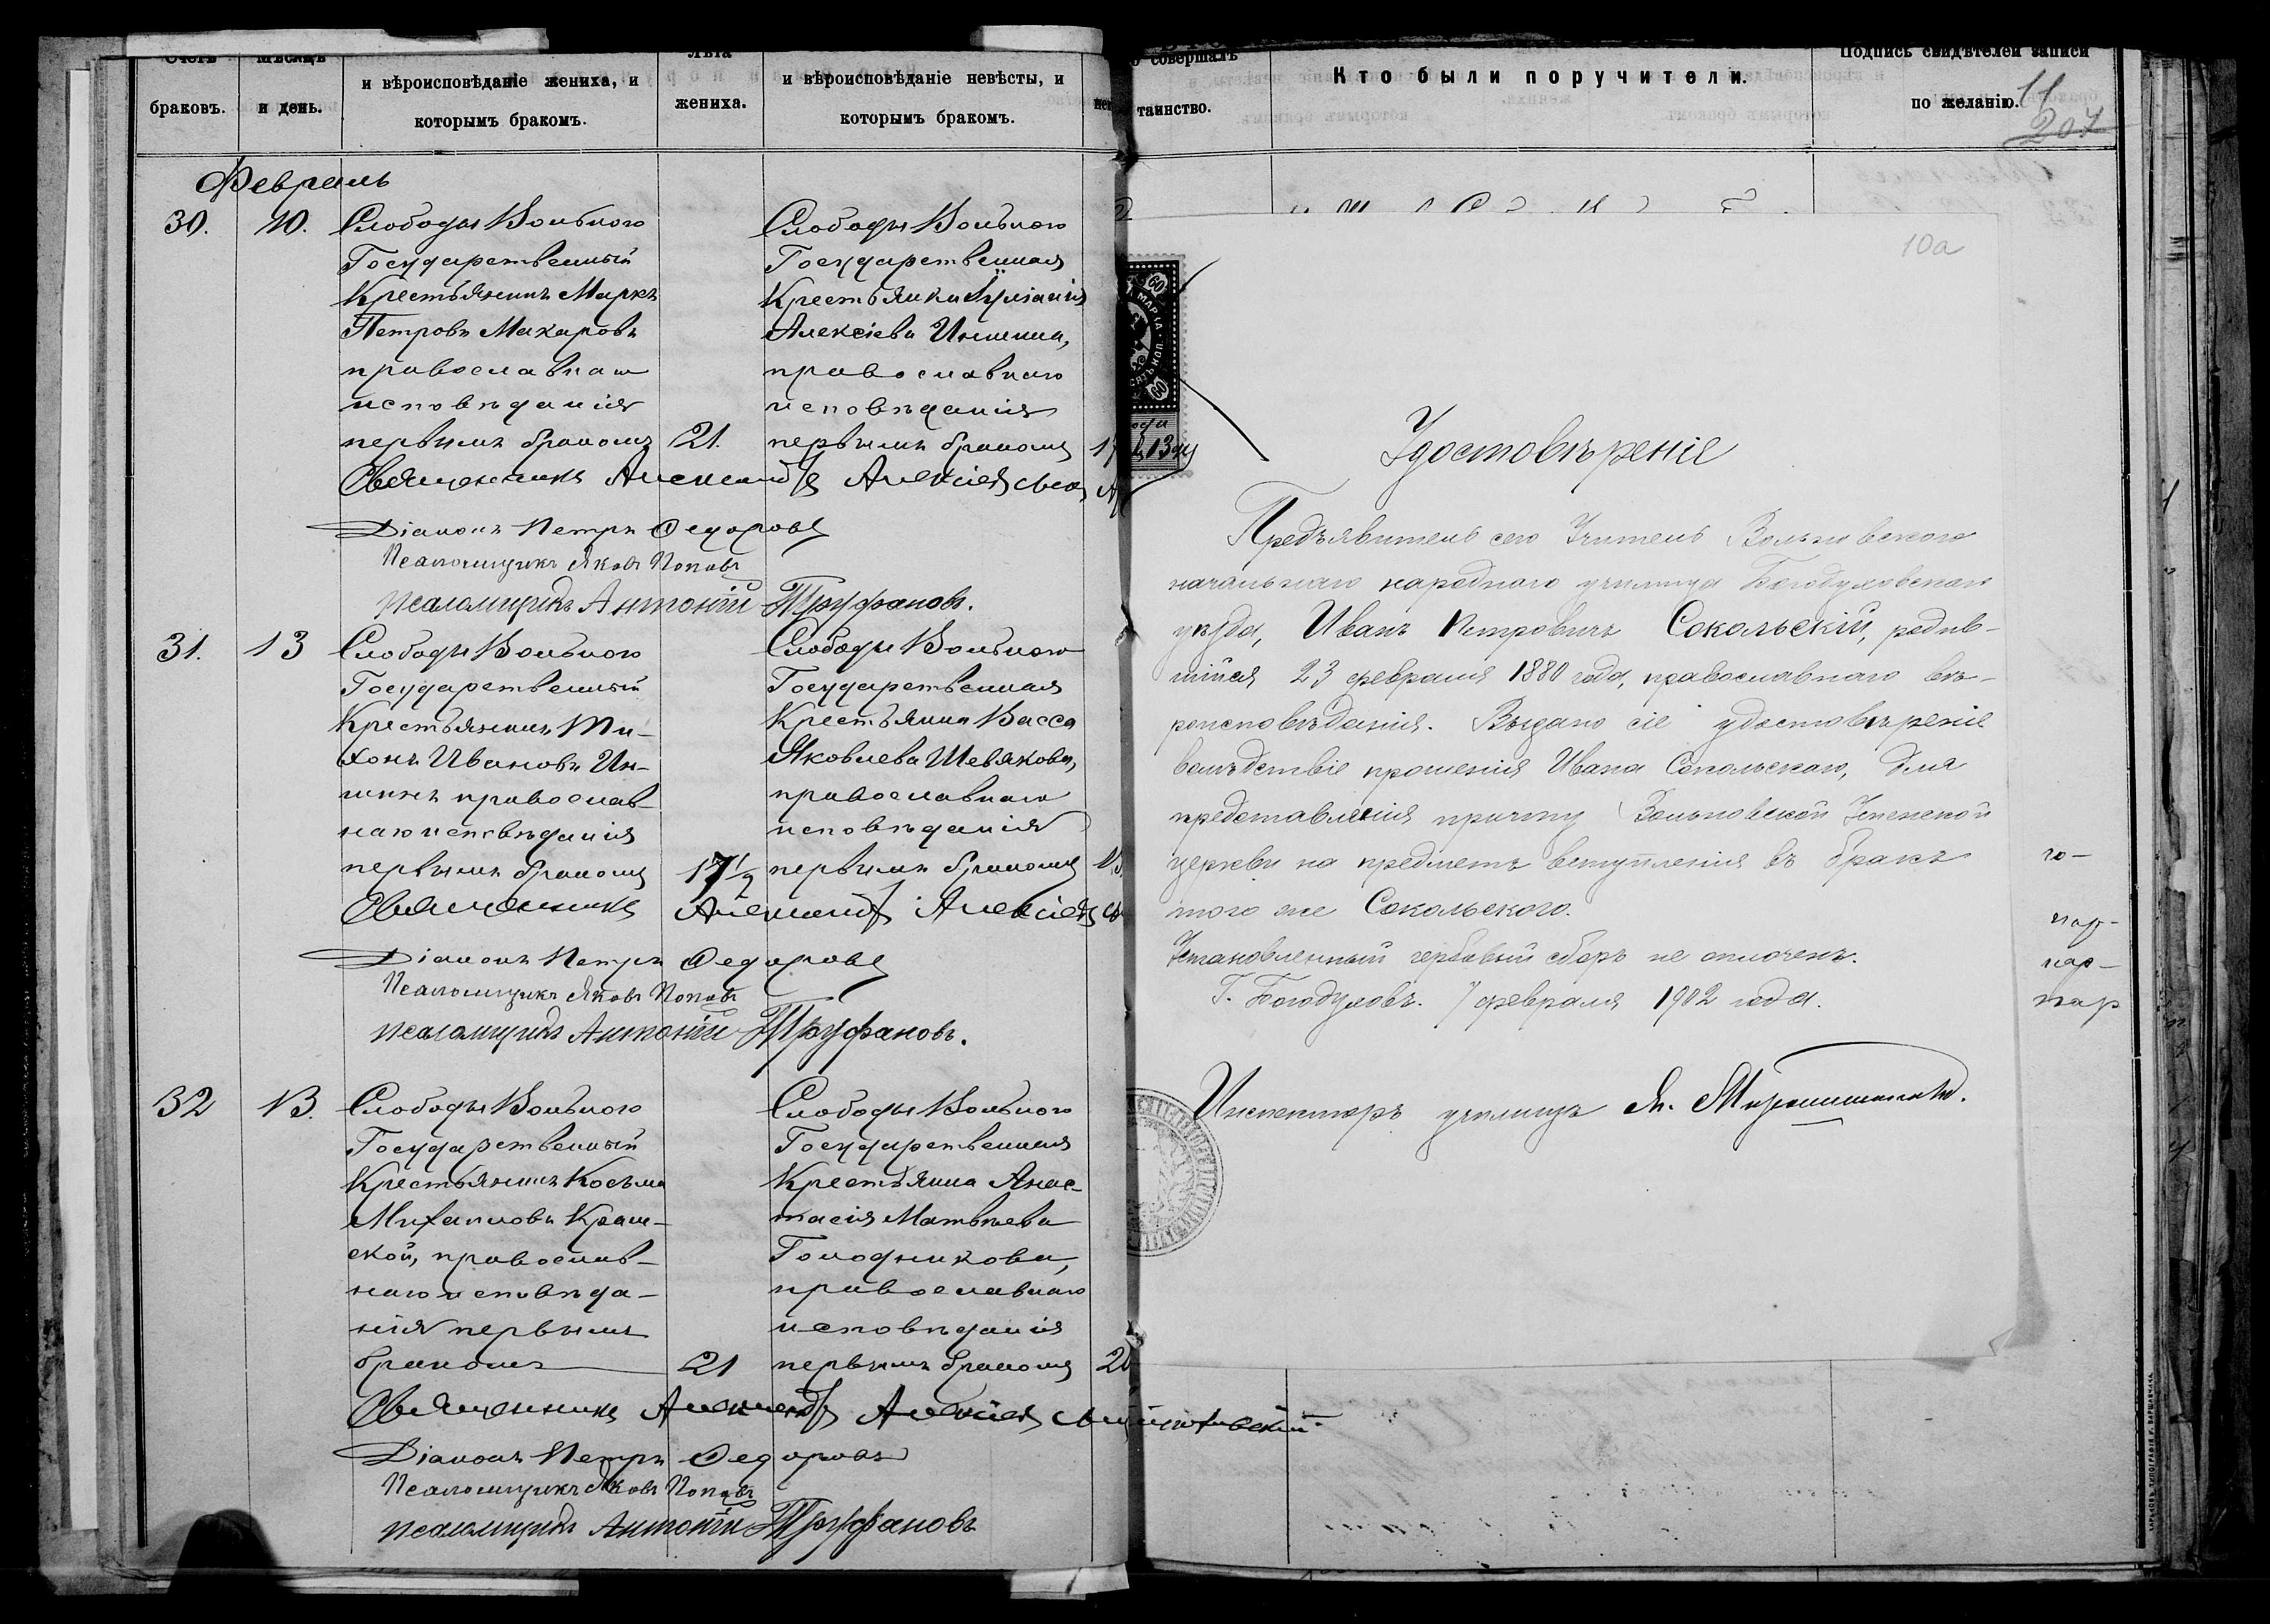 Счетъ
браковъ.
Мѣсяцъ
и день.
и вѣроисповѣданіе жениха, и
которымъ бракомъ.
Лѣта
жениха.
и вѣроисповѣданіе невѣсты, и
которымъ бракомъ.
Февраль
30.
10.
Слободы Вольного
Государственный
Крестьянинъ Маркъ
Петровъ Макаровъ
православнаго
исповѣданія
первымъ бракомъ
21.
Слободы Вольного
Государственная
Крестьянка
Алексіева
православнаго
исповѣданія
первымъ бракомъ
Священникъ Александръ Алексіевъ
Діаконъ Петръ Федоровъ
Псаломщикъ Яковъ Поповъ
псаломщикъ Антоній Труфановъ.
31.
13
Слободы Вольного
Государственный
Крестьянинъ Ти-
хонъ Ивановъ Ин-
шинъ православ-
наго исповѣданія
первымъ бракомъ
17 1/2
Слободы Вольного
Государственная
Крестьянка Васса
Яковлева Шевякова,
православнаго
исповѣданія
первымъ бракомъ
Священникъ Александръ Алексіевъ
Діаконъ Петръ Федоровъ
Псаломщикъ Яковъ Поповъ
псаломщикъ Антоній Труфановъ.
32
13.
Слободы Вольного
Государственный
Крестьянинъ Косьма
Михаиловъ Крам-
ской, православ-
наго исповѣда-
нія первымъ
бракомъ
21
Слободы Вольного
Государственная
Крестьянка Анас-
тасія Матвѣева
Голодникова,
православнаго
исповѣданія
первымъ бракомъ
20
Священникъ Александръ Алексіевъ
Діаконъ Петръ Федоровъ
Псаломщикъ Яковъ Поповъ
псаломщикъ Антоній Труфановъ
совершалъ
таинство.
Кто были поручители.
Подпись свидѣтелей записи
по желанію.
11
207
10а
60
Удостовѣреніе
Предъявитель сего Учитель Вольновского
начальнаго народного училища Богодуховскаго
уѣзда, Иванъ Петровичъ Сокольскій, родив-
шійся 23 февраля 1880 года, православнаго вѣ-
роисповѣданія. Выдано сіе удостовѣреніе
вслѣдствіе прошенія Ивана Сокольскаго, для
представленія причту Вольновской Успенской
церкви на предметъ вступленія въ бракъ
того же Сокольского.
Установленный гербовый сборъ не оплоченъ.
Г. Богодуховъ. 7 февраля 1902 года.
Инспекторъ училищъ
го-